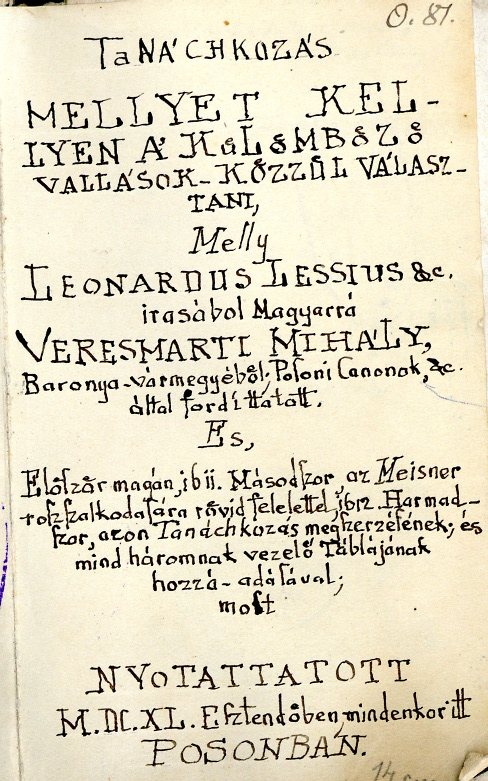 O. 81.
TANÁCHKOZÁS
MELLYET KEL-
LYEN A' KůLůMBůZů
VALLÁSOK-KŐZZŮL VÁLASZ-
TANI,
Melly
LEONARDUS LESSIUS &c.
irasábol Magyarrá
VERESMARTI MIHÁLY,
Baronya-vármegyéből, Posoni Canonok, &c.
által fordíttatott.
Es,
Elószŏr magán, ibii. Másodszor, az Meisner
roszszalkodaſára rŏvid felelettel, ibiz. Harmad-
ſzor, azon Tanáchkozás megſzerzéſének; és
mind háromnak vezelő Táblájának
hozzá-adáſával;
moſt
NYOTATTATOTT
M.DC.XL. Eſztendőben, mindenkor itt
POSONBAN.
14